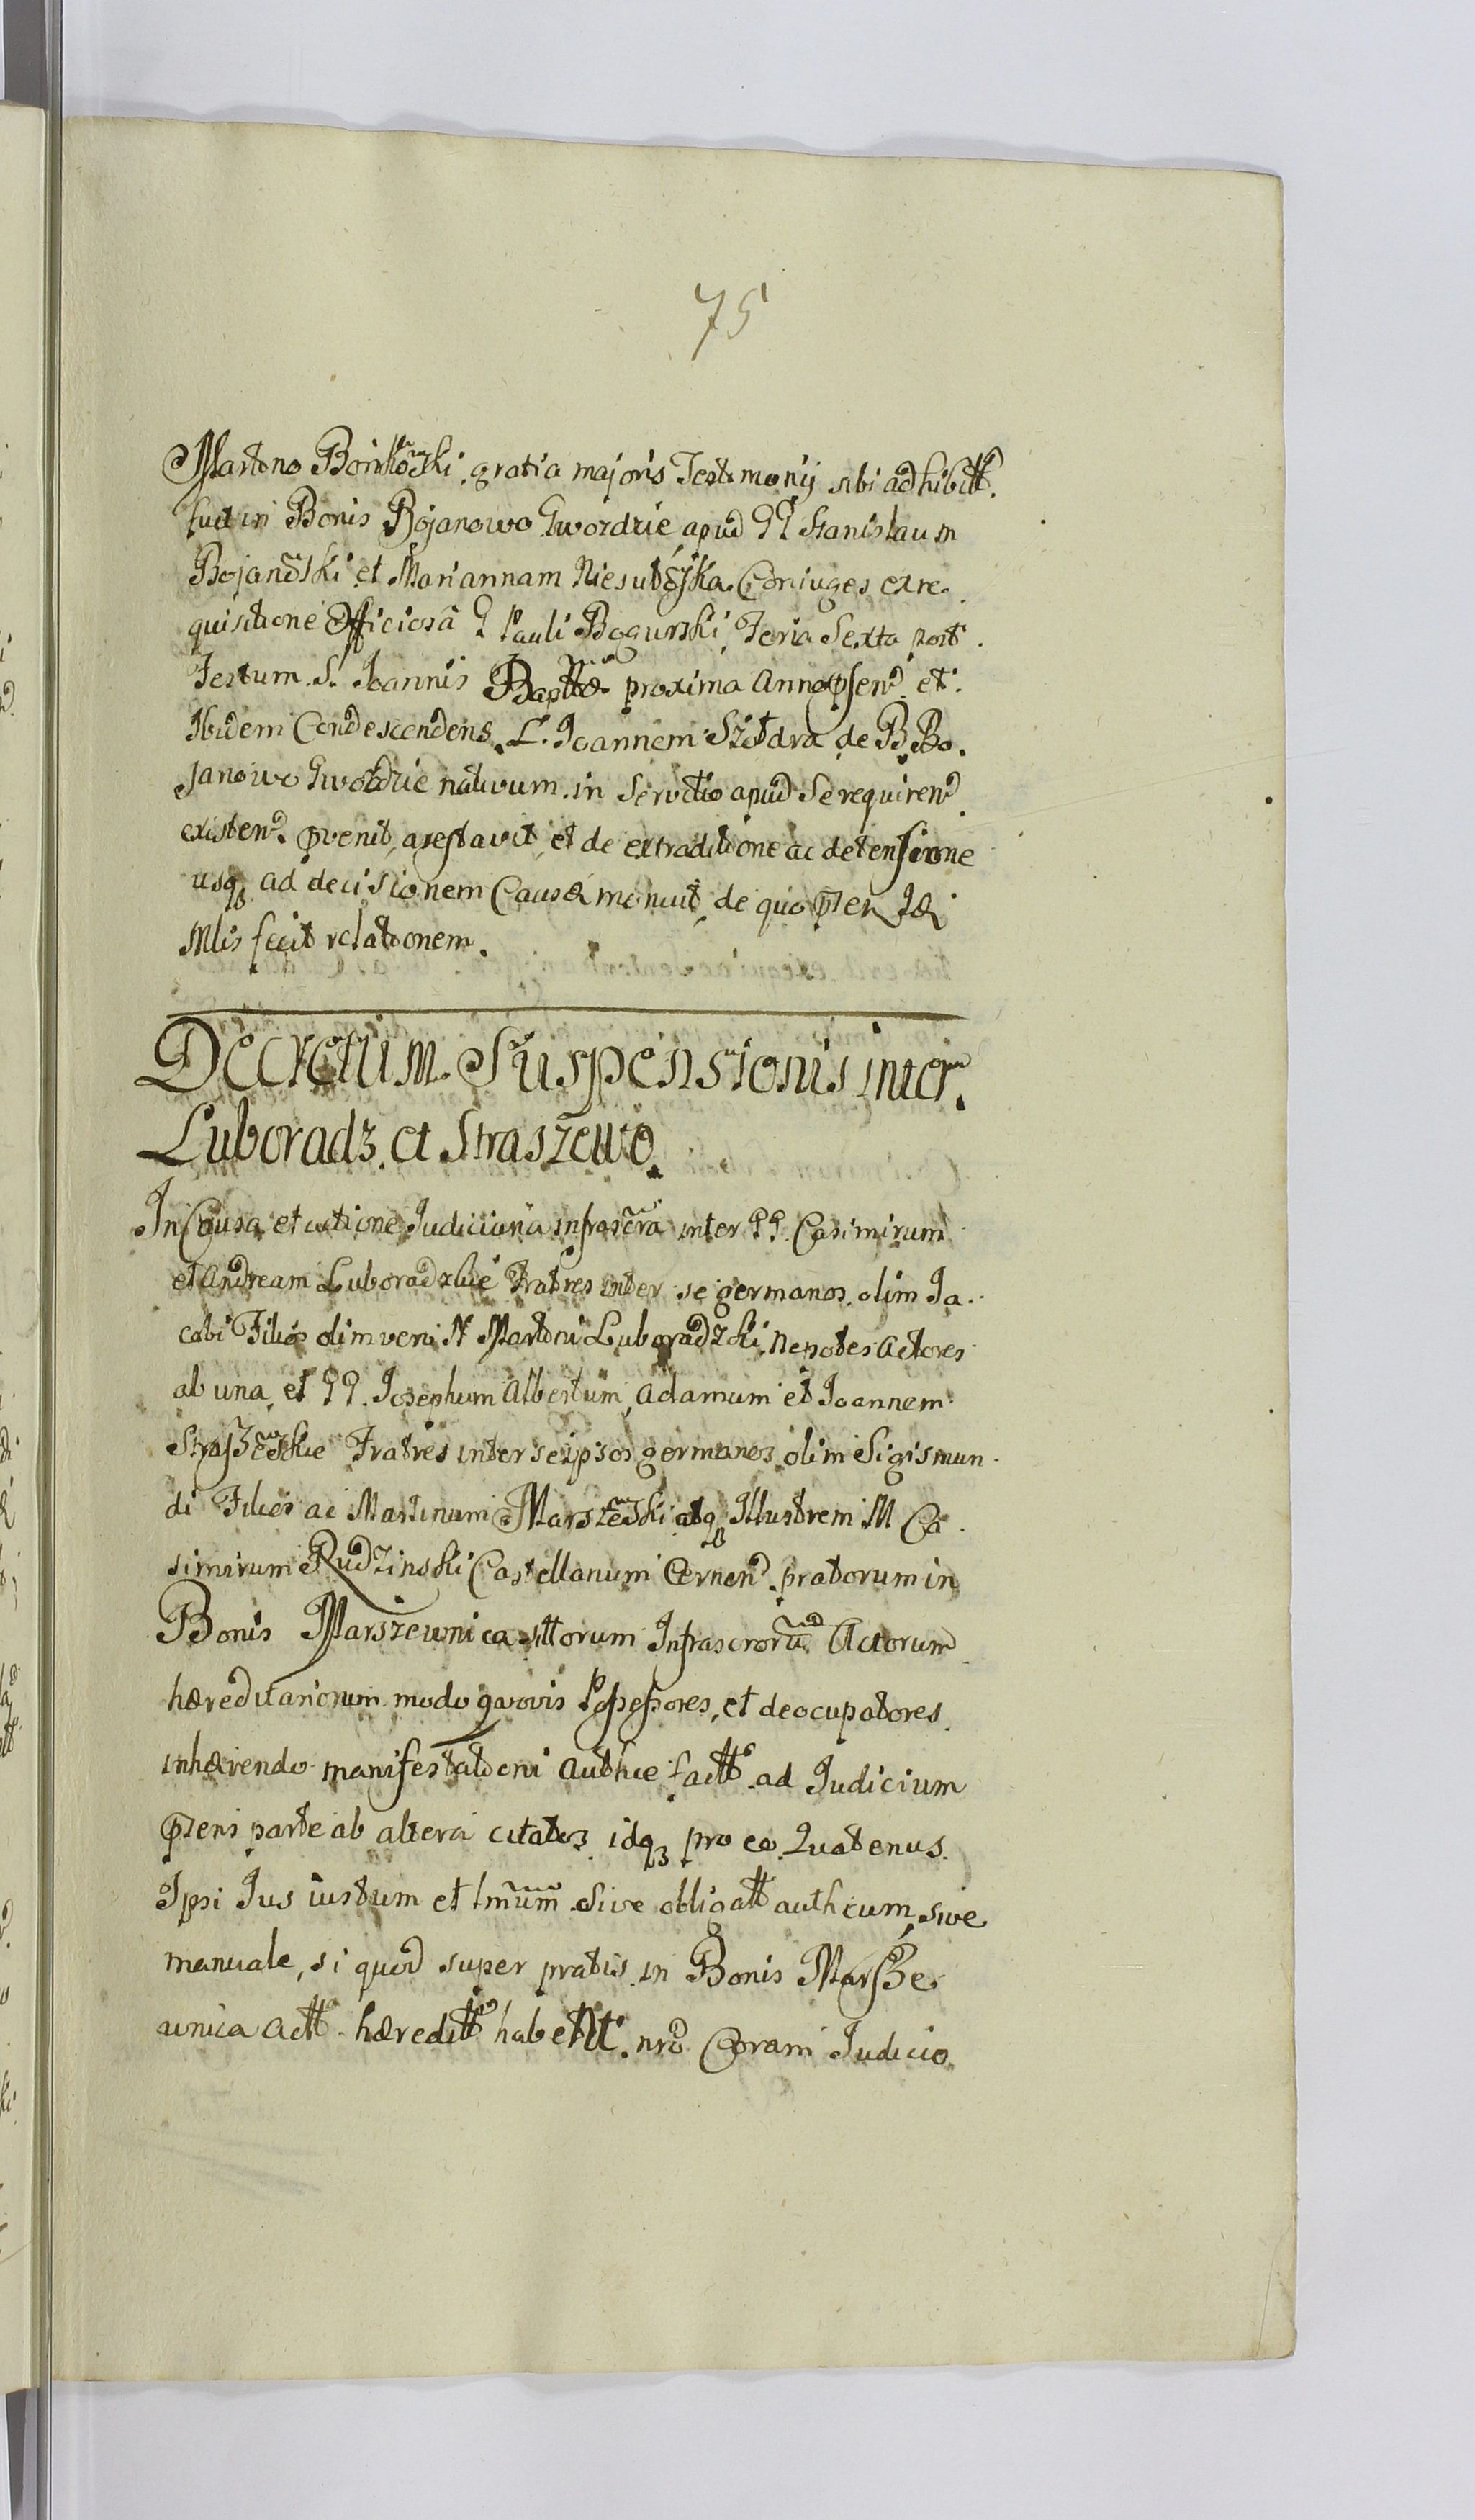 75
Martino Boińkowski gratia majoris Testimonij sibi adhibitt.
fuit in Bonis Bojanowo Gwozdzie apud GG Stanislaum
Bojanowski et Mariannam Coniuges ex re-
quisitione Officiosa G Pauli Bogurski, Feria Sexta post
Festum S. Joannis Bapttae proxima Anno psend. et
Ibidem Condescendens L. Joannem Szczodra de B Bo-
janowo Gwozdzie nativum in Servitio apud se requirend
existend. pvenit, arestavit, et de extraditione ac detensione
usqз ad decisionem Causæ monuit, de quo psen Idē
Mlis fecit relationem.
Decretum Suspensionis inter
Luboradz. et Straszewo.
In Causa et actione Judiciaria infrascra inter GG. Casimirum
et Andream Luboradzkie Fratres inter se germanos olim Ja-
cobi Filios olim vero N Martini Luboradzki Nepotes Actores
ab una, et GG. Josephum Albertum, Adamum et Joannem
Straszewskie Fratres inter se ipsos germanos olim Sigismun-
di Filios ac Martinum Marszewski atqз Illustrem M Ca-
simirum Rudzinski Castellanum Cernen. pratorum in
Bonis Marszewnica sittorum Infrascrorū Actorum
hæreditariorum modo quovis Possessores, et deocupatores
inhærendo manifestationi Authce factt. ad Judicium
psens parte ab altera citatos idqз pro eo Quatenus
Ipsi Jus iustum et lmum sive obligatt authcum, sive
manuale, si quod super pratis in Bonis Marsze-
wnica Actt. hæreditt habent. nro Coram Judicio